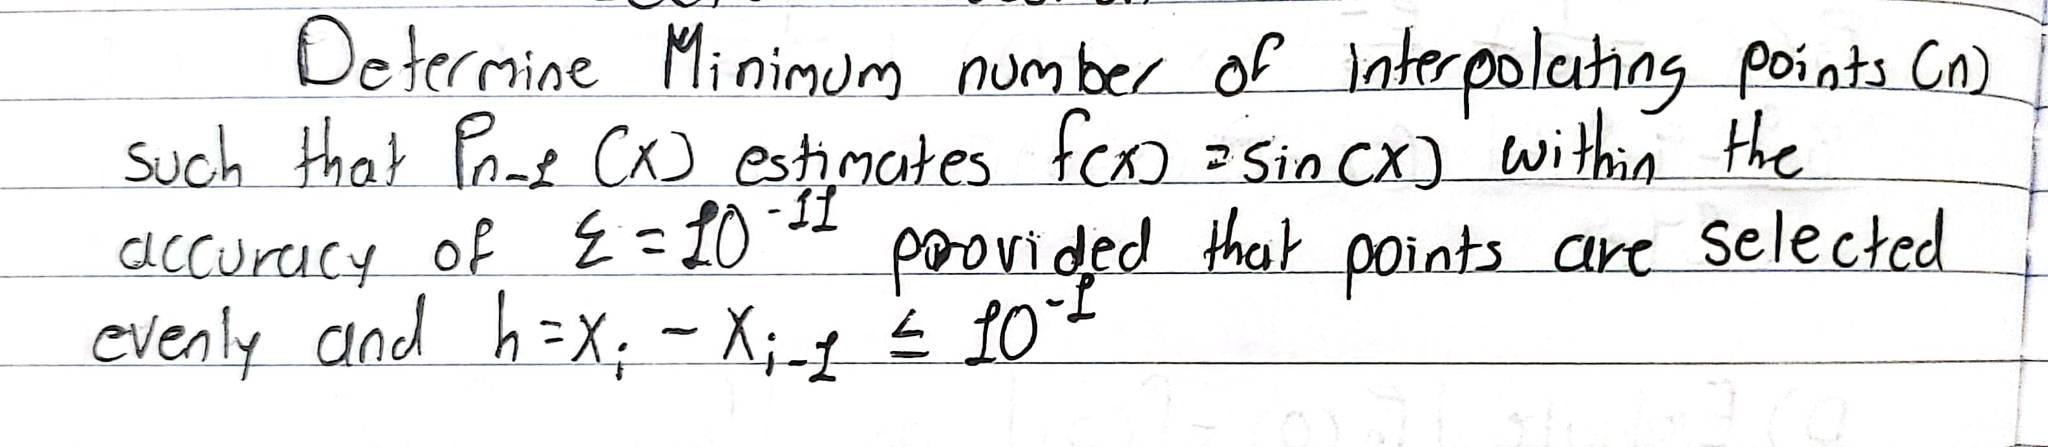 Determine Minimum number of interpolating points (n)
such that Pn-1 (x) estimates f(x) = sin(x) within the
accuracy of ε = 10^-11 proovided that points are selected
evenly and h = xi - xi-1 ≤ 10^-1